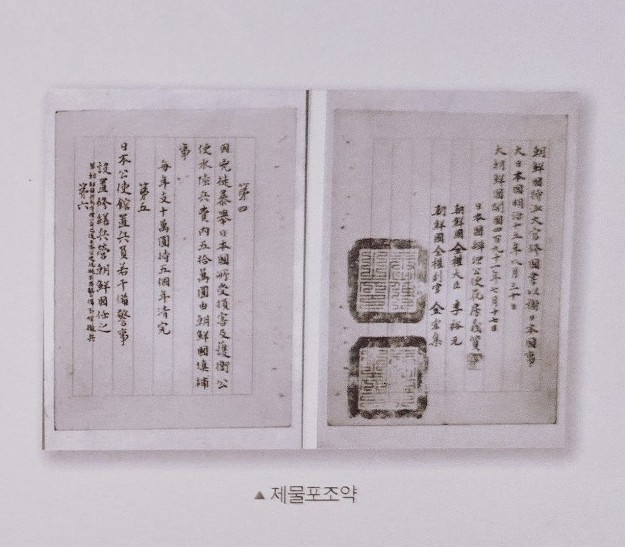 第四
因兇徒暴擧日本國所受損害及護衛公
使水陸兵費內五拾萬圓由朝鮮國塡補
事
每年支十萬圓待五個年淸完
第五
日本公使館置兵員若干備警事
設置修繕兵營朝鮮國任之
若朝鮮國兵民守律一年之後日本公使視做不要警備不妨撤兵
第六
朝鮮國特派大官修國書以謝日本國事
大日本國明治十五年八月三十日
大朝鮮國開國四百九十一年七月十七日
日本國辨理公使花房義質
朝鮮國全權大臣 李裕元
朝鮮國全權副官 金宏集
▲ 제물포조약